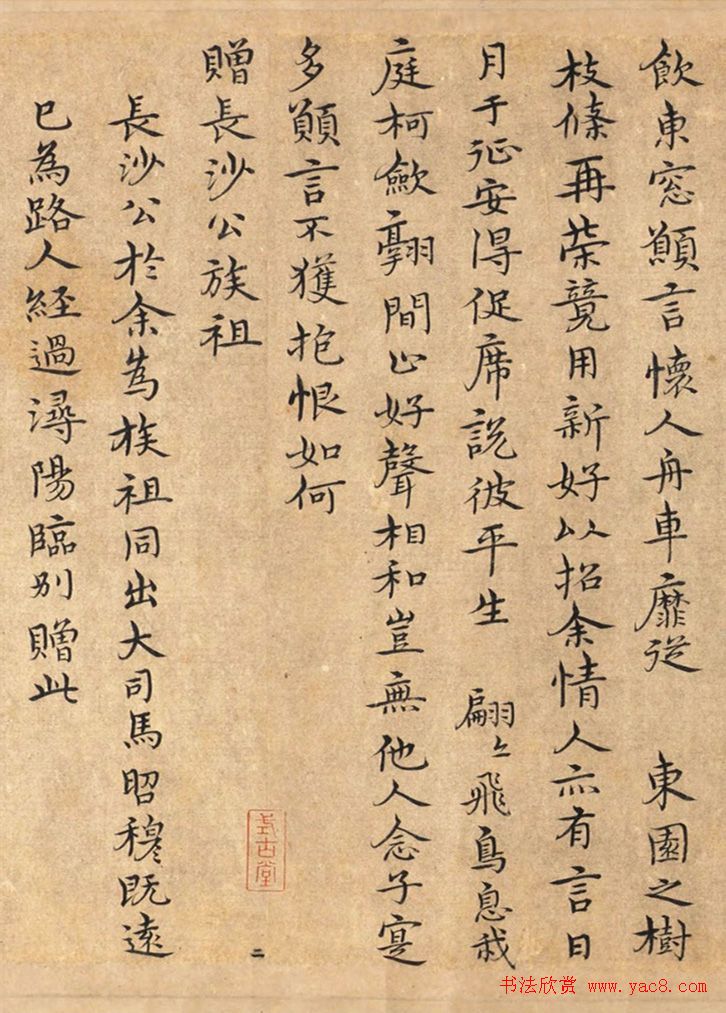 飲東窓願言懷人舟車靡從　東園之樹
枝條再榮競用新好以招余情人亦有言日
月于征安得促席說彼平生　翩〻飛鳥息我
庭柯歛翮間止好聲相和豈無他人念子寔
多願言不獲抱恨如何
贈長沙公族祖
長沙公於余為族祖同出大司馬昭穆既遠
已為路人經過潯陽臨別贈此
二
书法欣赏 www.yac8.com